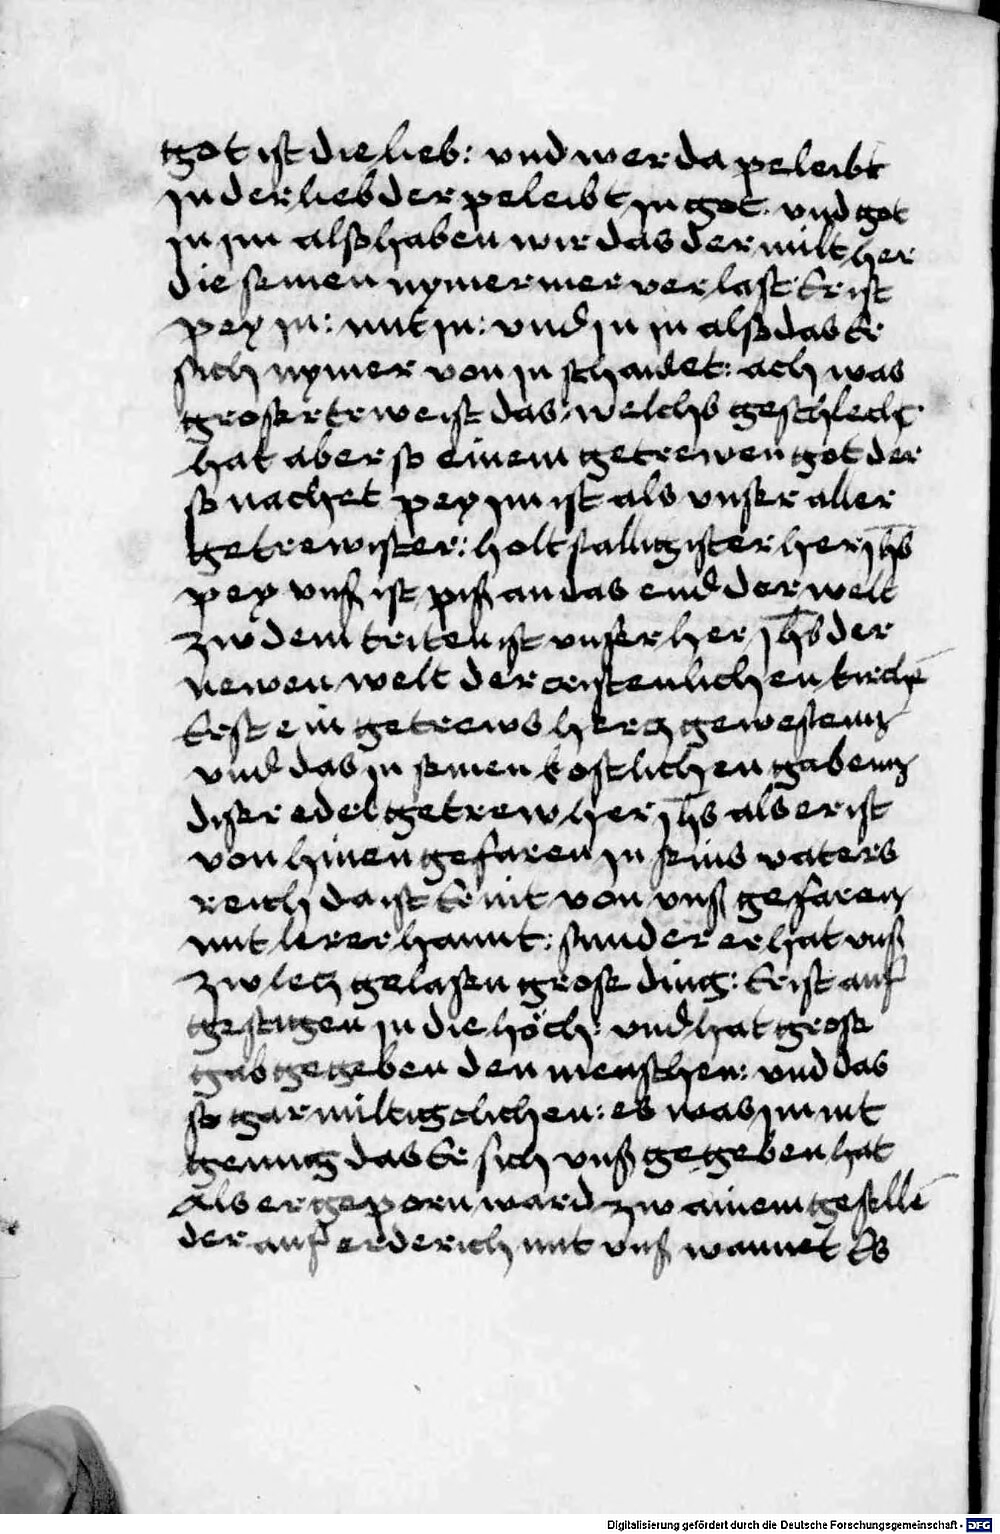 got ist die lieb: und wer da peleibt
in der lieb der peleibt in got. und got
in im alß haben wir das der milt her
die seinen nymer mer verlast Er ist
pey in: mit in: und in in alß das Er
sich nymer von in schaidet: ach was
groser trew ist das: welchs geschlecht
hat aber so einem getrewen got der
so nachet pey im ist als unser aller
getrewister: holtsalligister her jhs
pey unß ist piß an das end der welt
zw dem triten ist unser her jhs der
newen welt der cristenlichen kirchē
Er ist ein getrews hercz gewesenn
und das in seinen kostlichen gabenn
diser edel getrew her jhs als er ist
von hinen gefaren in seins vaters
reich da ist Er nit von unß gefaren
mit lerer hannt: sunder er hat unß
zw lecz gelasen grose ding: Er ist auf
gestigen in die höch: und hat grose
gab gegeben den menschen: und das
so gar miltigclichen: es was im nit
genug das Er sich unß gegeben hat
Als er geporn ward zw ainem gesellē
der auf erderich mit unß wannet Es
Digitalisierung gefördert durch die Deutsche Forschungsgemeinschaft - DFG